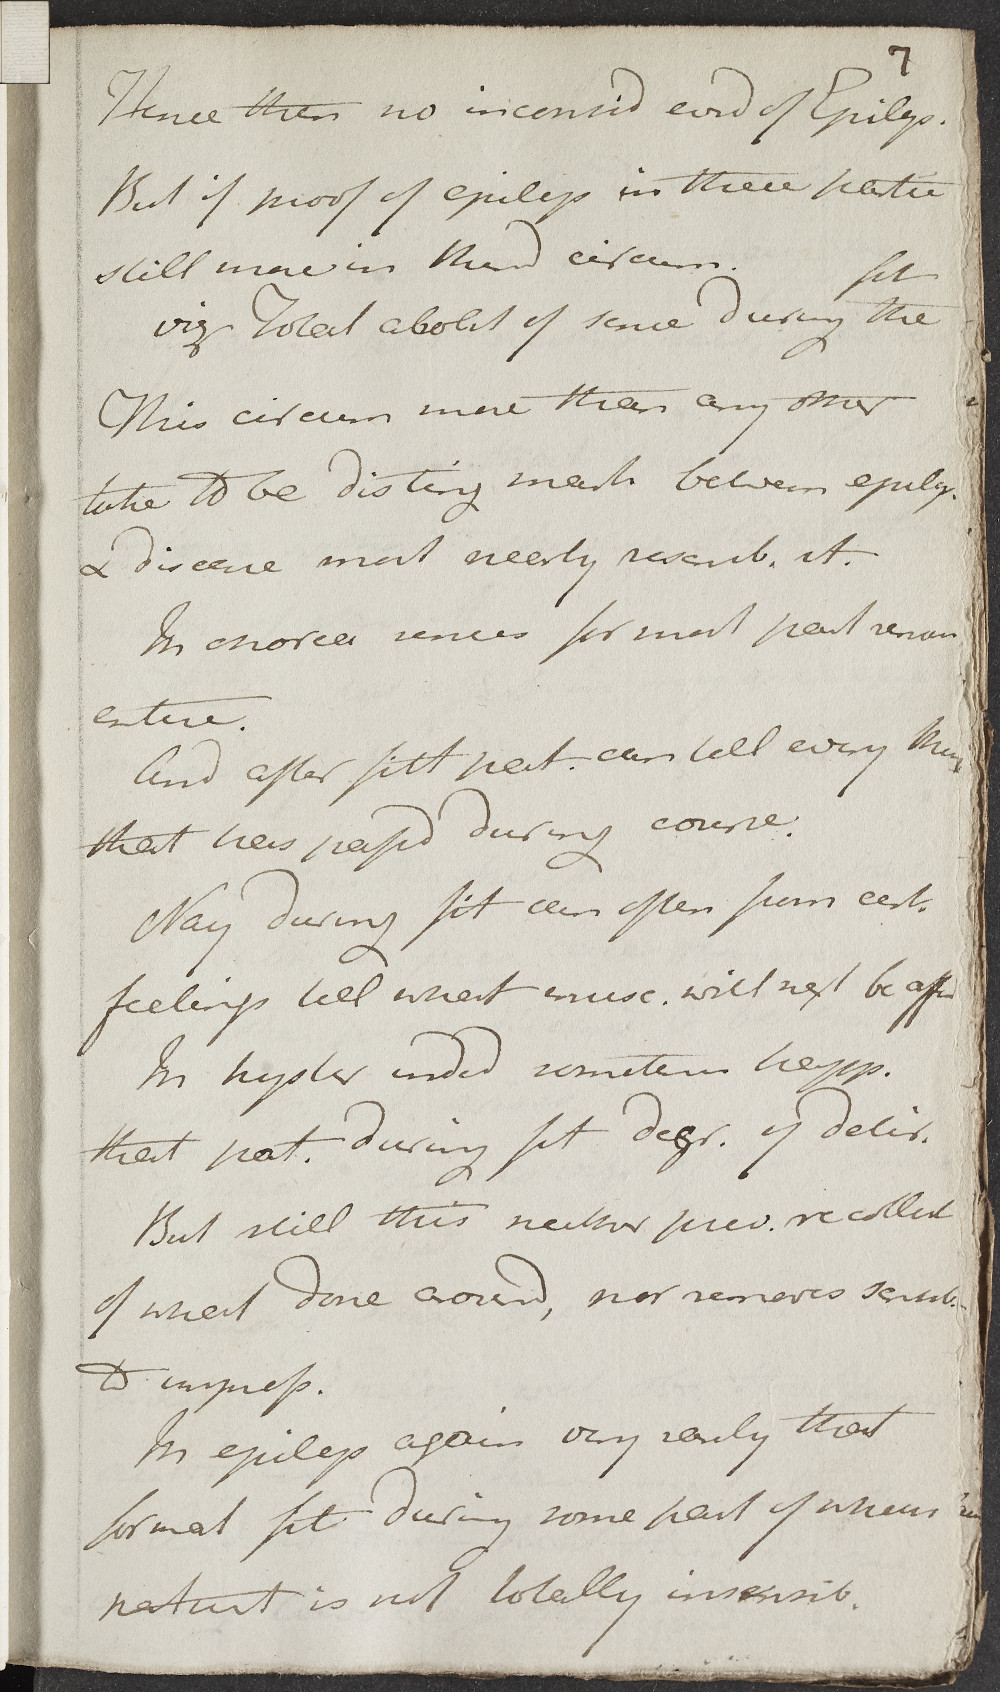 7
Hence then no inconsid evid of Epileps.
But if proof of epileps in these partic
still more in third circum.
fit
viz Total abolit of sense during the
This circum more than any other
take to be disting mark between epilep.
& disease most nearly resemb. it.
In chorea senses for most part remain
entire.
And after fitt pat. can tell every thing
that has passd during course.
Nay during fit can often from cert.
feelings tell what musc. will next be affd
In hyster indeed sometim happ.
that pat. during fit degr. of delir.
But still this neither prev. recollect
of what done around, nor removes sensib.
to impress.
In epileps again very rarely that
formal fit during some part of whens
patient is not totally insensib.